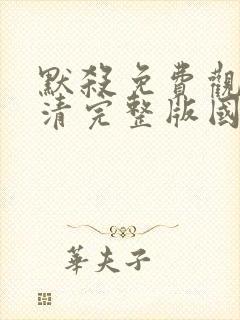 默殺免費觀
清完整版國
華夫子